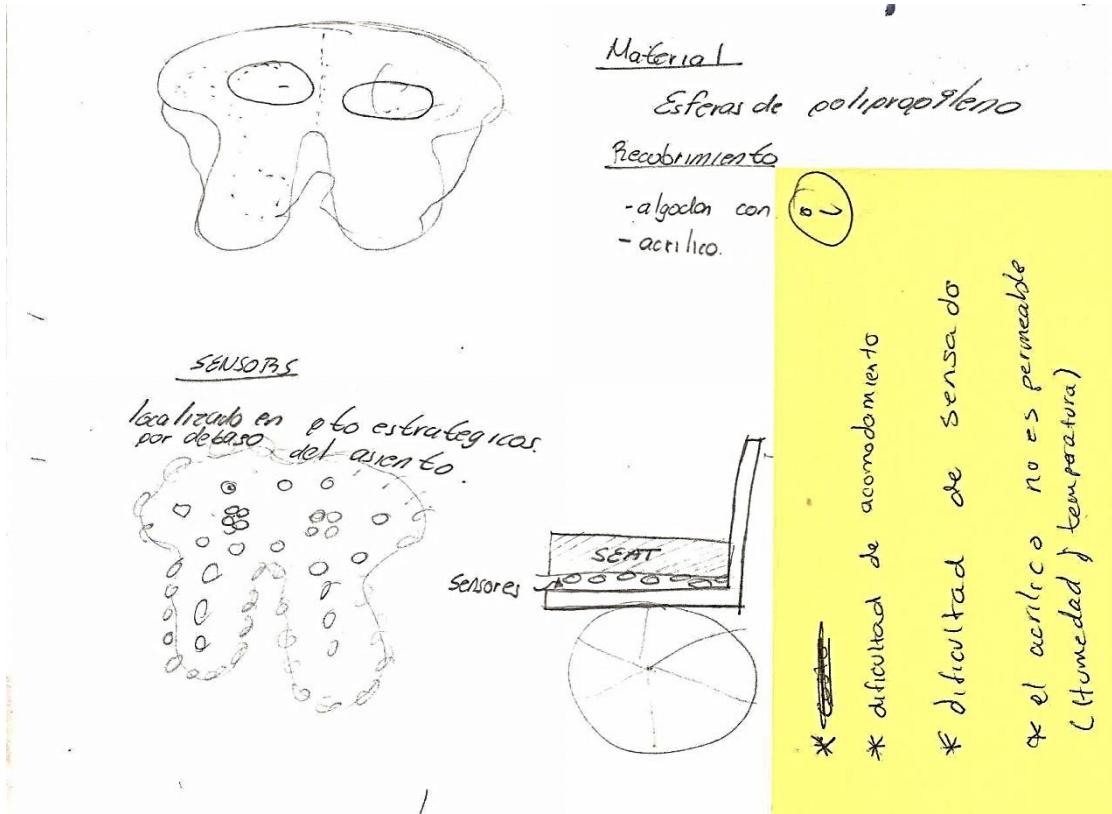 Material
Esferas de polipropileno
Recubrimiento
- algodon con
- acrilico.
SENSORS
localizado en pto estrategicos.
por debajo del asiento.
SEAT
Sensores
* dificultad de acomodamiento
* dificultad de sensado
* el acrilico no es permeable
(Humedad y temperatura)